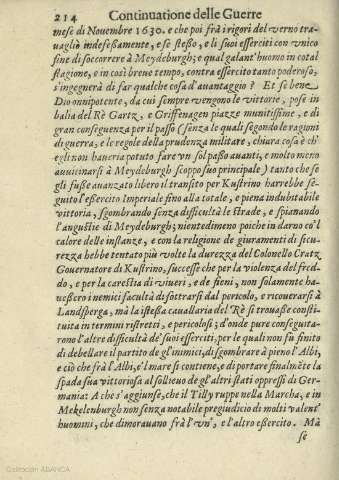 214 Continuatione delle Guerre
mese di Nouembre 1630. e che poi frà i rigori del verno tra-
uagliò indefessamente, e se stesso, e li suoi esserciti con vnico
fine di soccorrere à Meydeburgh; e qual galant'huomo in cotal
stagione, e in così breue tempo, contra essercito tanto poderoso,
s'ingegnerà di far qualche cosa d'auantaggio? Et se bene
Dio onnipotente, da cui sempre vengono le vittorie, pose in
balia del Rè Gartz, e Griffenagen piazze munitissime, e di
gran conseguenza per il passo (senza le quali segondo le ragioni
di guerra, e le regole della prudenza militare, chiara cosa è ch'
egli non haueria potuto fare vn sol passo auanti, e molto meno
auuicinarsi à Meydeburgh scoppo suo principale) tanto che se
gli fusse auanzato libero il transito per Kustrino harrebbe se-
guito l'essercito Imperiale sino alla totale, e piena indubitabile
vittoria, sgombrando senza difficultà le strade, e spianando
l'angustie di Meydeburgh; nientedimeno poiche in darno co'l
calore delle instanze, e con la religione de giuramenti di sicu-
rezza hebbe tentato più volte la durezza del Colonello Cratz
Gouernatore di Kustrino, successe che per la violenza del fred-
do, e per la carestia di viueri, e de fieni, non solamente ha-
uessero i nemici facultà di sottrarsi dal pericolo, e ricouerarsi à
Landsperga, mà la istessa cauallaria del Rè si trouasse consti-
tuita in termini ristretti, e pericolosi; d'onde pure conseguita-
rono l'altre difficultà de' suoi esserciti, per le quali non fù finito
di debellare il partito de gl'inimici, di sgombrare à pieno l'Albi,
e ciò che frà l'Albi, e'l mare si contiene, e di portare finalmẽte la
spada sua vittoriosa al sollieuo de gl'altri stati oppressi di Ger-
mania: A che s'aggiunse, che il Tilly ruppe nella Marcha, e in
Mekelenburgh non senza notabile pregiudicio di molti valent'
huomini, che dimorauano frà l'vn', e l'altro essercito. Mà
se
Colección ABANCA